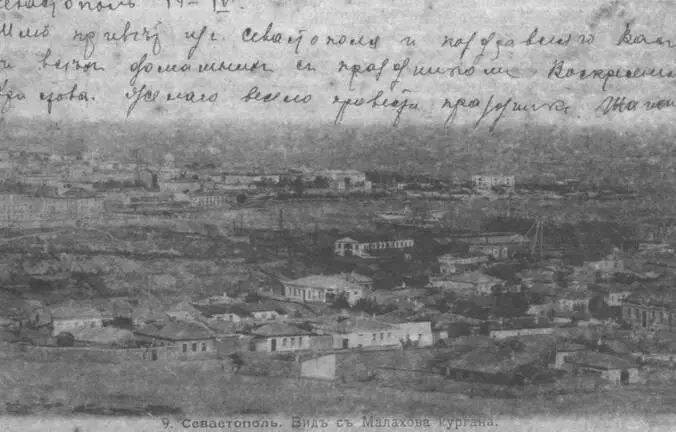 Севастополь 19-IV.
Шлю привѣтъ изъ Севастополя и поздравляю Васъ
и всѣхъ домашнихъ съ праздникомъ Воскресенія
Христова. Желаю весело провести праздникъ.
9. Севастополь. Видъ съ Малахова кургана.